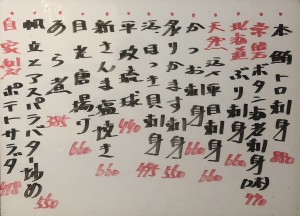 本鮪トロ刺身 880
ボタン海老刺身 770
北海道 ぶり刺身 660
天然 刺身 660
かつお刺身 660
炙りかます刺身 550
活ほっき貝刺身 495
440
新さんま塩焼き 660
目光唐揚り 660
あら煮 385
帆立とアスパラバター炒め 550
自家製 ポテトサラダ 418